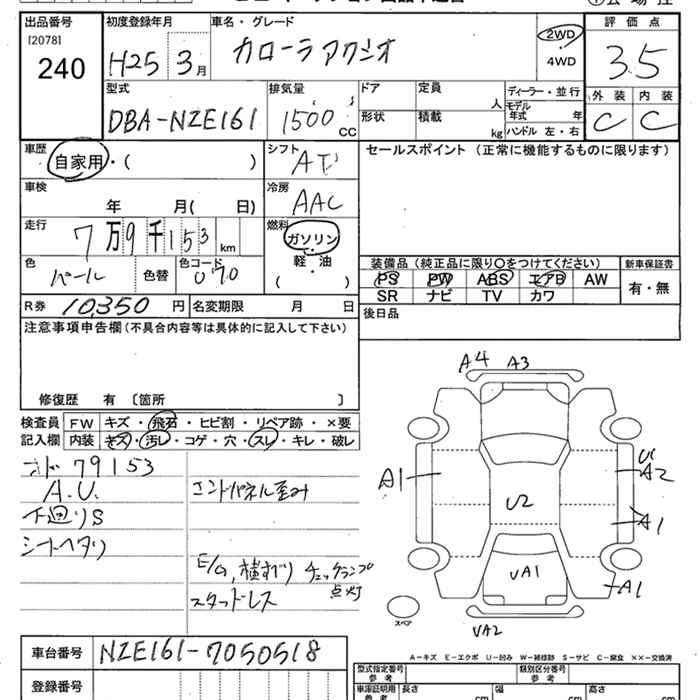 出品番号 初度登録年月 車名・グレード 評価点
[2078] 240 H25 3月 カローラアクシオ 2WD 4WD 3.5
型式 排気量 ドア 定員 人 ディーラー・並行 外装 内装
DBA-NZE161 1500 CC 形状 積載 kg モデル年式 年 ハンドル 左・右 C C
車歴 自家用・( ) シフト AT セールスポイント (正常に機能するものに限ります)
車検 年 月( 日) 冷房 AAC
走行 7万9千153 km 燃料 ガソリン・軽・油 ( )
色 パール 色替 色コード 070
装備品 (純正品に限り○をつけてください) 新車保証書
PS PW ABS エアB AW 有・無
SR ナビ TV カワ
R券 10,350 円 名変期限 月 日 後日品
注意事項申告欄(不具合内容等は具体的に記入して下さい)
修復歴 有 〔箇所 〕
検査員 FW キズ・飛石・ヒビ割・リペア跡・×要
記入欄 内装 キズ・汚レ・コゲ・穴・スレ・キレ・破レ
79153
A.U. エンドパネル歪み
下廻りS
シートヘタリ
E/G, チェックランプ点灯
スタッドレス
A4 A3
A1 U1 A2
U2 A1
UA1 A1
スペア UA2
A-キズ E-エクボ U-凹み W-補修跡 S-サビ C-腐食 ××-交換済
車台番号 NZE161-7050518
登録番号
型式指定番号 参考 類別区分番号 参考
車庫証明用 参考 長さ cm 幅 cm 高さ cm